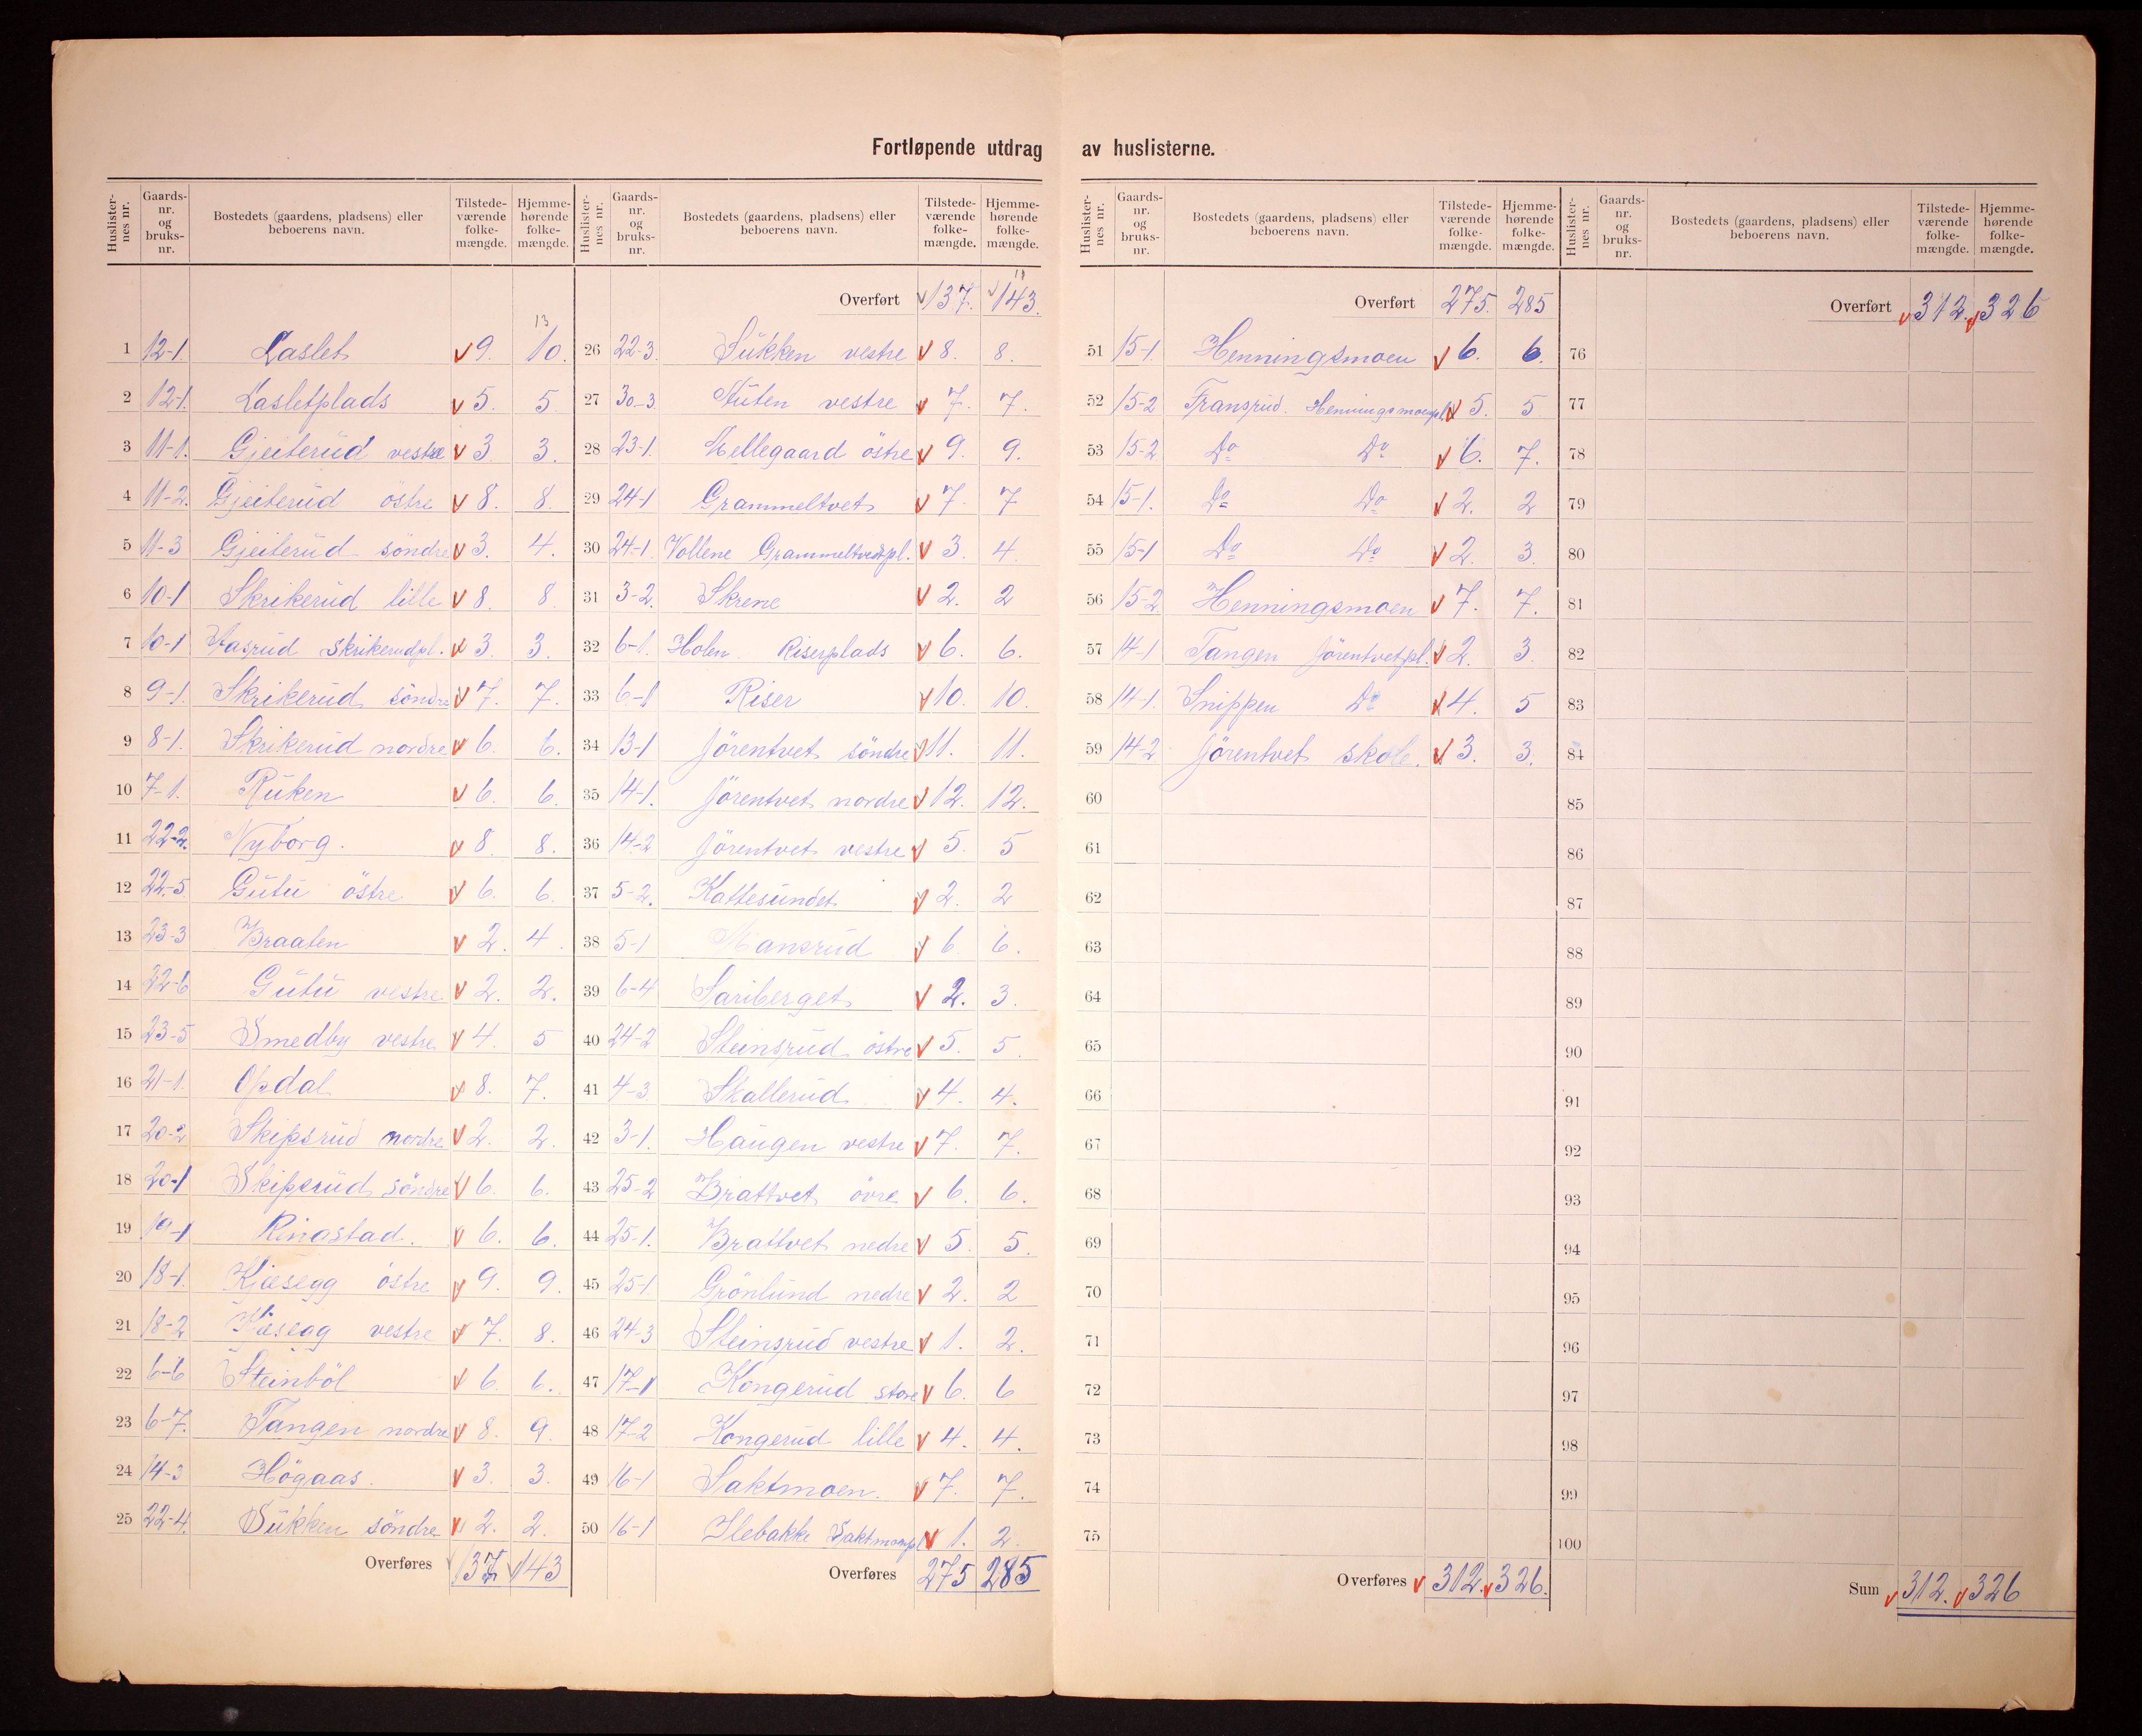 Fortløpende utdrag av huslisterne.
Huslisternes nr. Gaards-nr. og bruks-nr. Bostedets (gaardens, pladsens) eller beboerens navn. Tilstedeværende folkemængde. Hjemmehørende folkemængde.
13
1 12-1 Laslet 9. 10.
2 12-1. Lasletplads 5. 5.
3 11-1. Gjeiterud vestre 3 3.
4 11-2. Gjeiterud östre 8. 8.
5 11-3 Gjeiterud söndre 3. 4.
6 10-1 Skrikerud lille 8. 8
7 10-1 Aasrud Skrikerudpl. 3. 3.
8 9-1. Skrikerud söndre 7. 7.
9 8-1. Skrikerud nordre 6. 6.
10 7-1. Ruken 6. 6.
11 22-2. Nyborg. 8. 8.
12 22-5. Gutu östre 6. 6.
13 23-3 Braaten 2. 4.
14 22-6 Gutu vestre 2. 2.
15 23-5 Smedby vestre 4. 5
16 21-1. Opdal 8. 7.
17 20-2 Skipsrud nordre 2. 2.
18 20-1 Skipsrud söndre 6. 6.
19 19-1 Ringstad. 6. 6.
20 18-1. Kjæsegg östre 9. 9.
21 18-2 Kjæsegg vestre 7. 8.
22 6-6 Steinböl 6. 6.
23 6-7. Tangen nordre 8. 9.
24 14-3 Högaas. 3. 3.
25 22-4. Sukken söndre 2. 2.
Overføres 137. 143
Huslisternes nr. Gaards-nr. og bruks-nr. Bostedets (gaardens, pladsens) eller beboerens navn. Tilstedeværende folkemængde. Hjemmehørende folkemængde.
Overført 137. 143.
26 22-3. Sukken vestre 8. 8.
27 30-3 Stuten vestre 7. 7.
28 23-1. Hellegaard östre 9. 9.
29 24-1 Grammeltvet 7. 7
30 24-1. Vollene Grammeltvedtpl. 3. 4.
31 3-2. Skrene 2. 2
32 6-1. Holen Riserplads 6. 6.
33 6-1 Riser 10. 10.
34 13-1 Jörentvet söndre 11. 11.
35 14-1. Jörentvet nordre 12. 12.
36 14-2 Jörentvet vestre 5. 5
37 5-2. Kattesundet 2. 2
38 5-1 Mansrud 6. 6.
39 6-4 Sariberget 2. 3.
40 24-2 Steinsrud östre 5. 5.
41 4-3. Skallerud 4. 4.
42 3-1. Haugen vestre 7. 7.
43 25-2 Brattvet övre 6. 6.
44 25-1. Brattvet nedre 5. 5.
45 25-1 Grönlund nedre 2. 2
46 24-3 Steinsrud vestre 1. 2.
47 17-1 Kongerud store 6. 6
48 17-2 Kongerud lille 4. 4.
49 16-1 Saktmoen. 7. 7.
50 16-1 Ilebakke Saktmoenpl 1. 2.
Overføres 275 285
Huslisternes nr. Gaards-nr. og bruks-nr. Bostedets (gaardens, pladsens) eller beboerens navn. Tilstedeværende folkemængde. Hjemmehørende folkemængde.
Overført 275. 285
51 15-1. Henningsmoen 6. 6.
52 15-2 Fransrud. Henningsmoenpl 5. 5
53 15-2 Do Do 6. 7.
54 15-1. Do Do 2. 2
55 15-1 Do Do 2. 3.
56 15-2 Henningsmoen 7. 7.
57 14-1 Tangen Jörentvetpl. 2. 3.
58 14-1. Snippen Do 4. 5
59 14-2 Jörentvet skole. 3. 3.
60
61
62
63
64
65
66
67
68
69
70
71
72
73
74
75
Overføres 312. 326.
Huslisternes nr. Gaards-nr. og bruks-nr. Bostedets (gaardens, pladsens) eller beboerens navn. Tilstedeværende folkemængde. Hjemmehørende folkemængde.
Overført 312. 326
76
77
78
79
80
81
82
83
84
85
86
87
88
89
90
91
92
93
94
95
96
97
98
99
100
Sum 312. 326